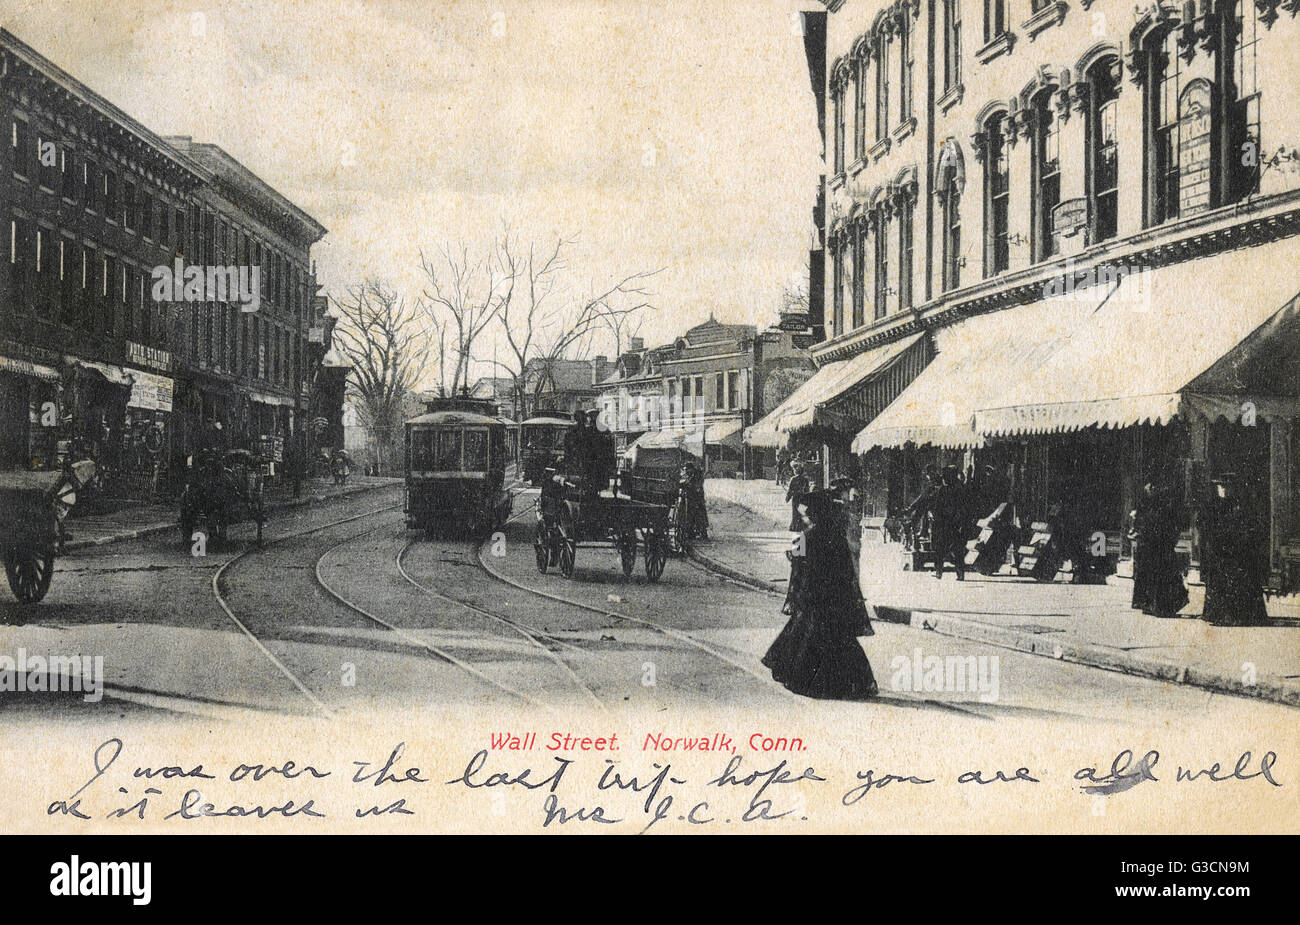 TAILOR
Wall Street. Norwalk, Conn.
I was over the last trip hope you are all well
as it leaves us Mrs J.C.A.
alamy
Image ID: G3CN9M
www.alamy.com